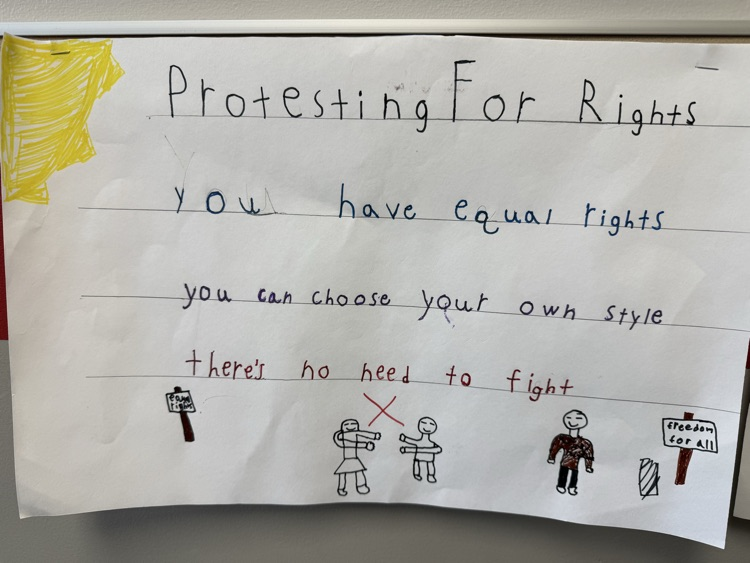 Protesting For Rights
you have equal rights
you can choose your own style
there's no need to fight
equal
rights
freedom
for all